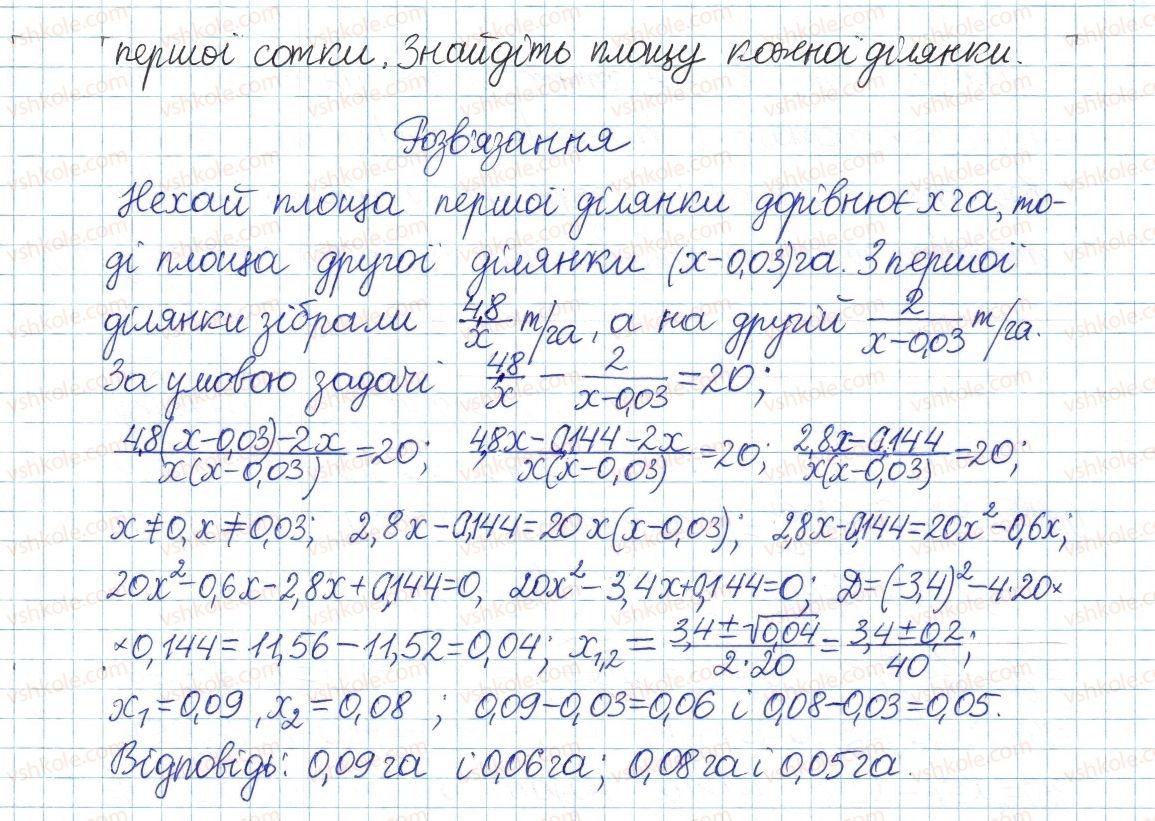 першої сотки. Знайдіть площу кожної ділянки.
Розв'язання
Нехай площа першої ділянки дорівнює x га, то-
ді площа другої ділянки (x-0,03)га. З першої
ділянки зібрали 4,8/x т/га, а на другій 2/(x-0,03) т/га.
За умовою задачі 4,8/x - 2/(x-0,03) = 20;
(4,8(x-0,03)-2x)/(x(x-0,03)) = 20; (4,8x-0,144-2x)/(x(x-0,03)) = 20; (2,8x-0,144)/(x(x-0,03)) = 20;
x≠0, x≠0,03; 2,8x-0,144=20x(x-0,03); 2,8x-0,144=20x²-0,6x;
20x²-0,6x-2,8x+0,144=0, 20x²-3,4x+0,144=0; Д=(-3,4)²-4·20×
×0,144=11,56-11,52=0,04; x₁,₂ = (3,4±√0,04)/(2·20) = (3,4±0,2)/40;
x₁=0,09, x₂=0,08; 0,09-0,03=0,06 і 0,08-0,03=0,05.
Відповідь: 0,09га і 0,06га; 0,08га і 0,05га.